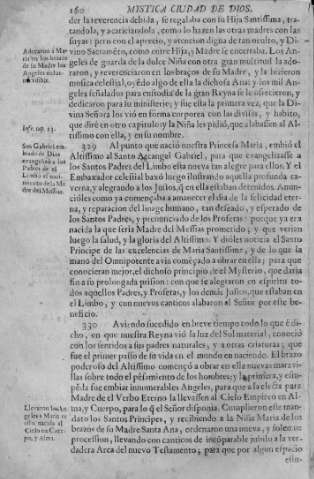 160 MISTICA CIUDAD DE DIOS.
der la reverencia debida, se regalaba con su Hija Santissima, tra-
tandola, y acariciandola, como lo hazen las otras madres con las
suyas; pero con el aprecio, y atencion digna de tan oculto, y Di-
vino Sacramento, como entre Hija, y Madre se encerraba. Los An-
geles de guarda de la dulce Niña con otra gran multitud la ado-
raron, y reverenciaron en los braços de su Madre, y la hizieron
musica celestial, oyédo algo de ella la dichosa Ana; y los mil An-
geles señalados para custodia de la gran Reyna se le ofrecieron, y
dedicaron para su ministerio; y fue esta la primera vez, que la Di-
vina Señora los viò en forma corporea con las divisas, y habito,
que dirè en otro capitulo; y la Niña les pidiò, que alabassen al Al-
tissimo con ella, y en su nombre.
329 Al punto que naciò nuestra Princesa Maria, embiò el
Altissimo al Santo Arcangel Gabriel, para que evangelizasse a
los Santos Padres del Limbo esta nueva tan alegre para ellos. Y el
Embaxador celestial baxò luego ilustrando aquella profunda ca-
verna, y alegrando a los Justos, q̃ en ella estaban detenidos. Anun-
ciòles como ya començaba a amanecer el dia de la felicidad eter-
na, y reparacion del linage humano, tan deseado, y esperado de
los Santos Padres, y prenunciado de los Profetas: porque ya era
nacida la que seria Madre del Messias prometido; y que verian
luego la salud, y la gloria del Altissimo. Y dióles noticia el Santo
Principe de las excelencias de Maria Santissima, y de lo que la
mano del Omnipotente avia comēçado a obrar en ella; para que
conociesen mejor el dichoso principio de el Mysterio, que daria
fin a su prolongada prision: con que se alegraron en espiritu to-
dos aquellos Padres, y Profetas, y los demàs Justos, que estaban en
el Limbo, y con nuevos canticos alabaron al Señor por este be-
neficio.
330 Aviendo sucedido en breve tiempo todo lo que è di-
cho, en que nuestra Reyna viò la luz del Sol material, conociò
con los sentidos a sus padres naturales, y a otras criaturas; que
fue el primer passo de su vida en el mundo en naciendo. El brazo
poderoso del Altissimo començò a obrar en ella nuevas maravi-
llas sobre todo el pēsamiento de los hombres; y la primera, y estu-
pēda fue embiar innumerables Angeles, para que a la electa para
Madre de el Verbo Eterno la llevassen al Cielo Empireo en Al-
ma, y Cuerpo, para lo q̃ el Señor disponia. Cumplieron este man-
dato los Santos Principes, y recibiendo a la Niña Maria de los
brazos de su Madre Santa Ana, ordenaron una nueva, y solemne
procession, llevando con canticos de incōparable jubilo a la ver-
dadera Arca del nuevo Testamento, para que por algun espacio